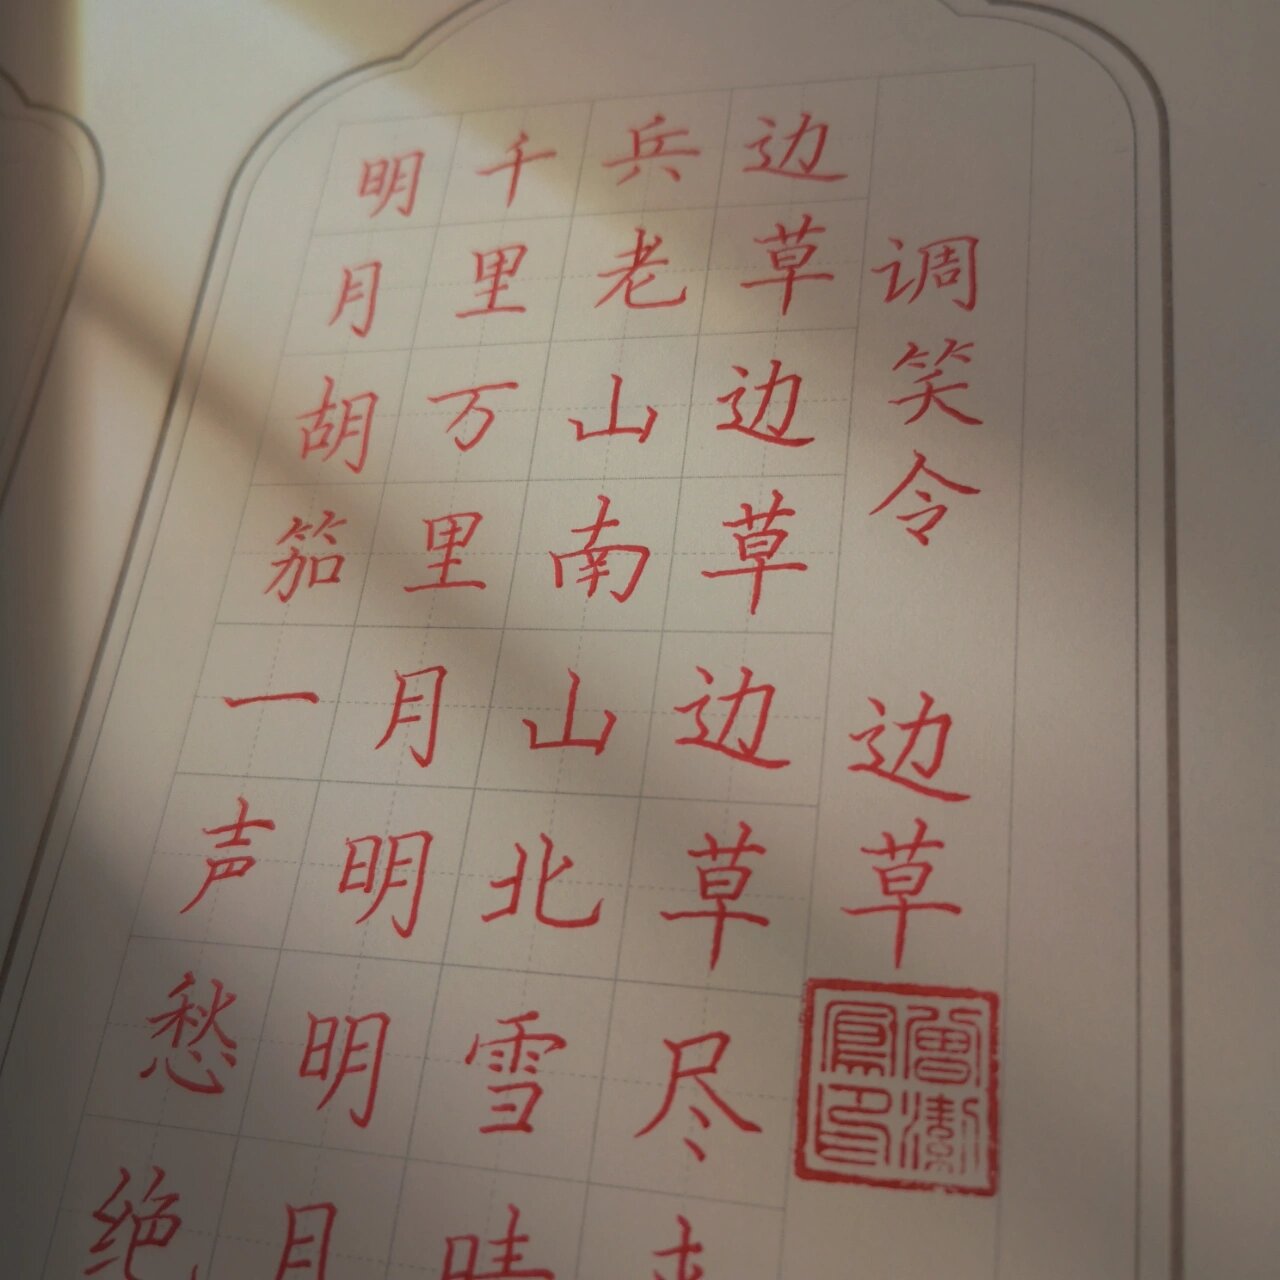 调笑令 边草
边草边草边草尽来
兵老山南山北雪晴
千里万里月明明月
明月胡笳一声愁绝